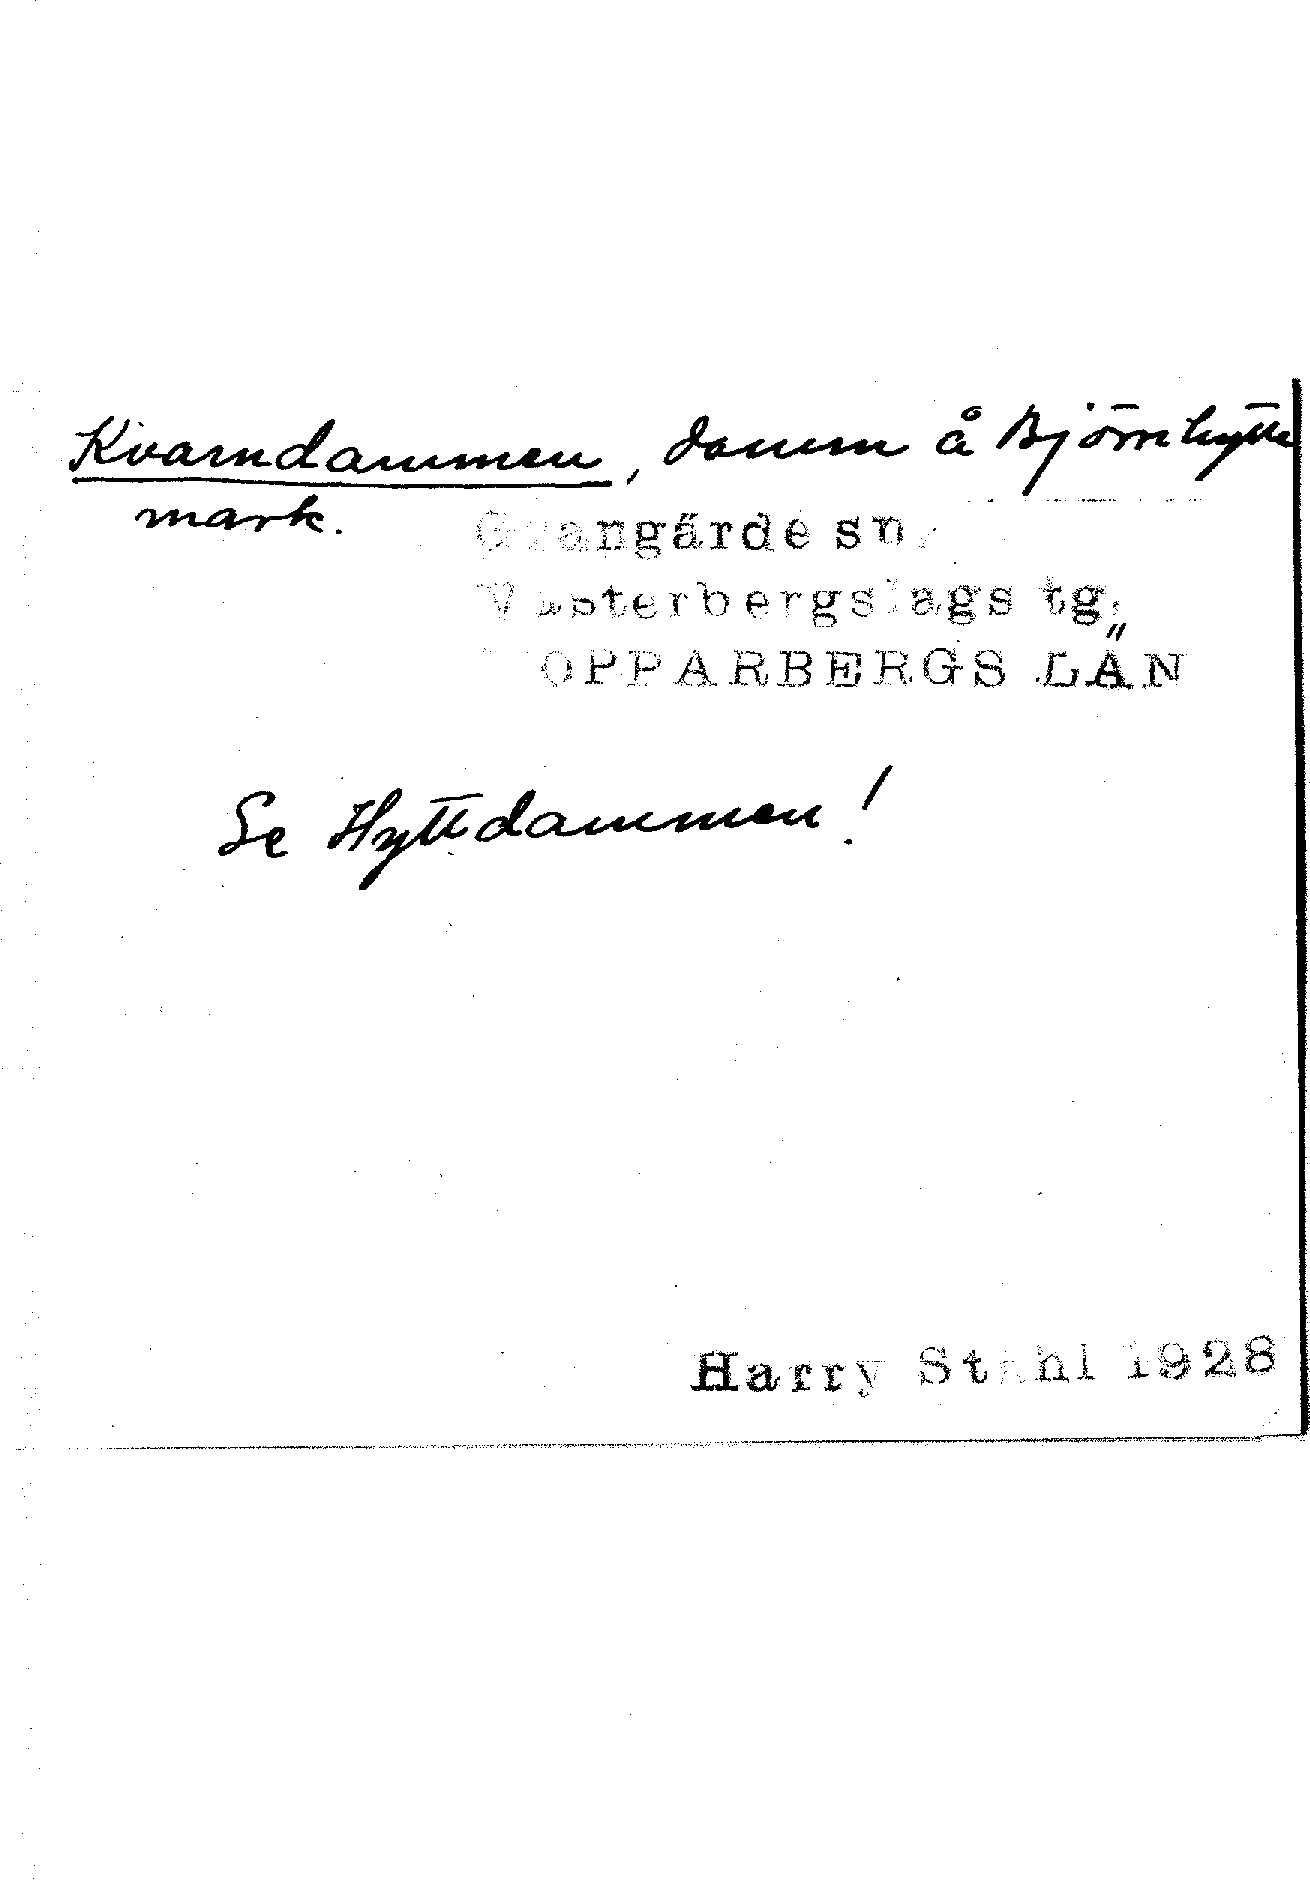 Kvarndammen, damm å Björnhytte
mark.
Grangärde sn.
Västerbergslags tg.
KOPPARBERGS LÄN
Se Hyttdammen!
Harry Ståhl 1928